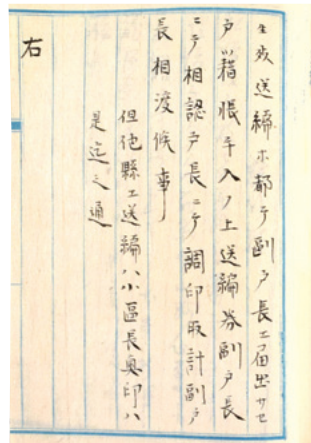 生死送編等都テ副戸長エ届出サセ
戸籍帳手入ノ上送編券副戸長
ニテ相認戸長ニテ調印取計副戸
長相渡候事
但他縣エ送編ハ小區長奥印ハ
是迄之通
右